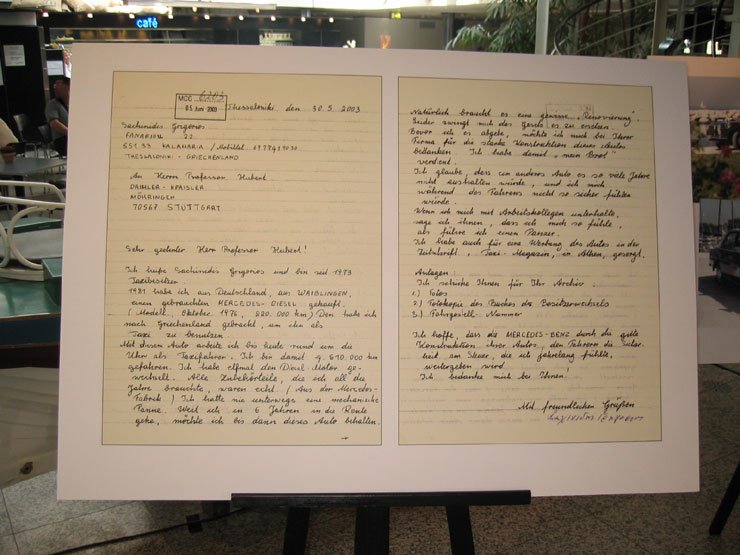 café
MCC 6303
05. Juni 2003
Thessaloniki, den 30.5.2003
Sachinides Gorgorios
FANARIOU 22
551 33 KALAMARIA / Mobiltel.
THESSALONIKI - GRIECHENLAND
An Herrn Professor Hubert
DAIMLER - KRAISLER
MÖHRINGEN
70567 STUTTGART
Sehr geehrter Herr Professor Hubert!
Ich heiße Sachinides Gorgorios und bin seit 1973
Taxibesitzer.
1981 habe ich aus Deutschland, aus WAIBLINGEN,
einen gebrauchten MERCEDES-DIESEL gekauft.
(Modell, Oktober 1976, 220.000 km) Den habe ich
nach Griechenland gebracht, um ihn als
Taxi zu benutzen.
Mit diesem Auto arbeite ich bis heute rund um die
Uhr als Taxifahrer. Ich bin damit 4.610.000 km
gefahren. Ich habe elfmal den Diesel Motor ge-
wechselt. Alle Zubehörteile, die ich all die
Jahre brauchte, waren echt (Aus der Mercedes-
Fabrik) Ich hatte nie unterwegs eine mechanische
Panne. Weil ich in 6 Jahren in die Rente
gehe, möchte ich bis dann dieses Auto behalten.
Natürlich braucht es eine gewisse Renovierung.
Leider zwingt mich das Gesetz es zu ersetzen.
Bevor ich es abgebe, möchte ich mich bei Ihrer
Firma für die starke Konstruktion dieses Autos
bedanken. Ich habe damit "mein Brot"
verdient.
Ich glaube, dass ein anderes Auto es so viele Jahre
nicht aushalten würde, und ich mich
während des Fahrens nicht so sicher fühlen
würde.
Wenn ich mich mit Arbeitskollegen unterhalte,
sage ich ihnen, dass ich mich so fühle,
als führe ich einen Panzer.
Ich habe auch für eine Werbung des Autos in der
Zeitschrift, Taxi-Magazin, in Athen, gesorgt.
Anlagen:
Ich schicke Ihnen für Ihr Archiv:
1.) Fotos
2.) Fotokopie des Buches des Besitzerwechsels
3.) Fahrgestell-Nummer
Ich hoffe, dass die MERCEDES-BENZ durch die gute
Konstruktion ihrer Autos, den Fahrern die Sicher-
heit am Steuer, die ich jahrelang fühlte,
weitergeben wird.
Ich bedanke mich bei Ihnen!
Mit freundlichen Grüßen